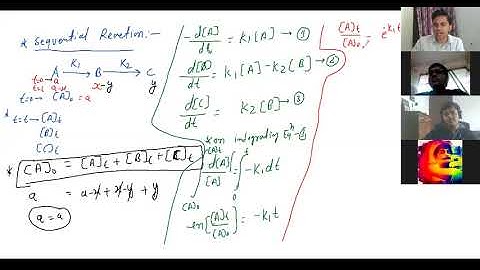 * Sequential Reaction:-
A K₁→ B K₂→ C
t=0→a
t=t a-x x-y y
t=0→ [A]₀ = a
t=t→ [A]t
[B]t
[C]t
* [A]₀ = [A]t + [B]t + [C]t
a = a-x + x-y + y
a = a
-d[A]/dt = K₁[A] → ①
d[B]/dt = K₁[A] - K₂[B] → ②
d[C]/dt = K₂[B] → ③
* on integrating Eqⁿ-①
∫ [A]₀ [A]t d[A]/[A] = ∫ 0 t -K₁dt
ln [A]t/[A]₀ = -K₁t
[A]t/[A]₀ =